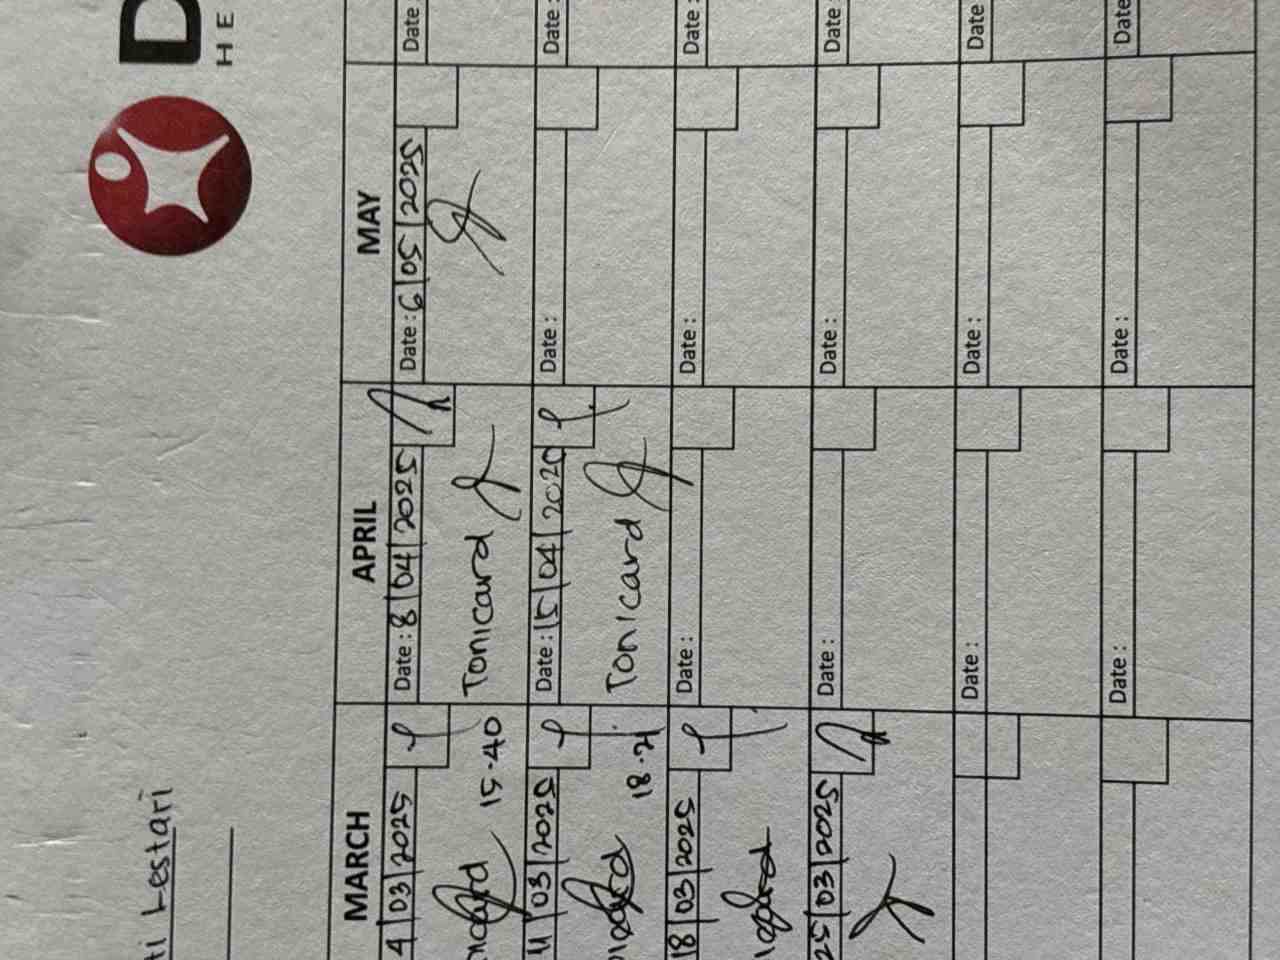 D
HE
ti Lestari
MARCH
APRIL
MAY
4/03/2025
Date : 8/04/2025
Date : 6/05/2025
Date
15.40
Tonicard
11/03/2025
Date : 15/04/2020
Date :
Date :
18.21
Tonicard
18/03/2025
Date :
Date :
Date :
25/03/2025
Date :
Date :
Date
Date :
Date :
Date
Date :
Date :
Date